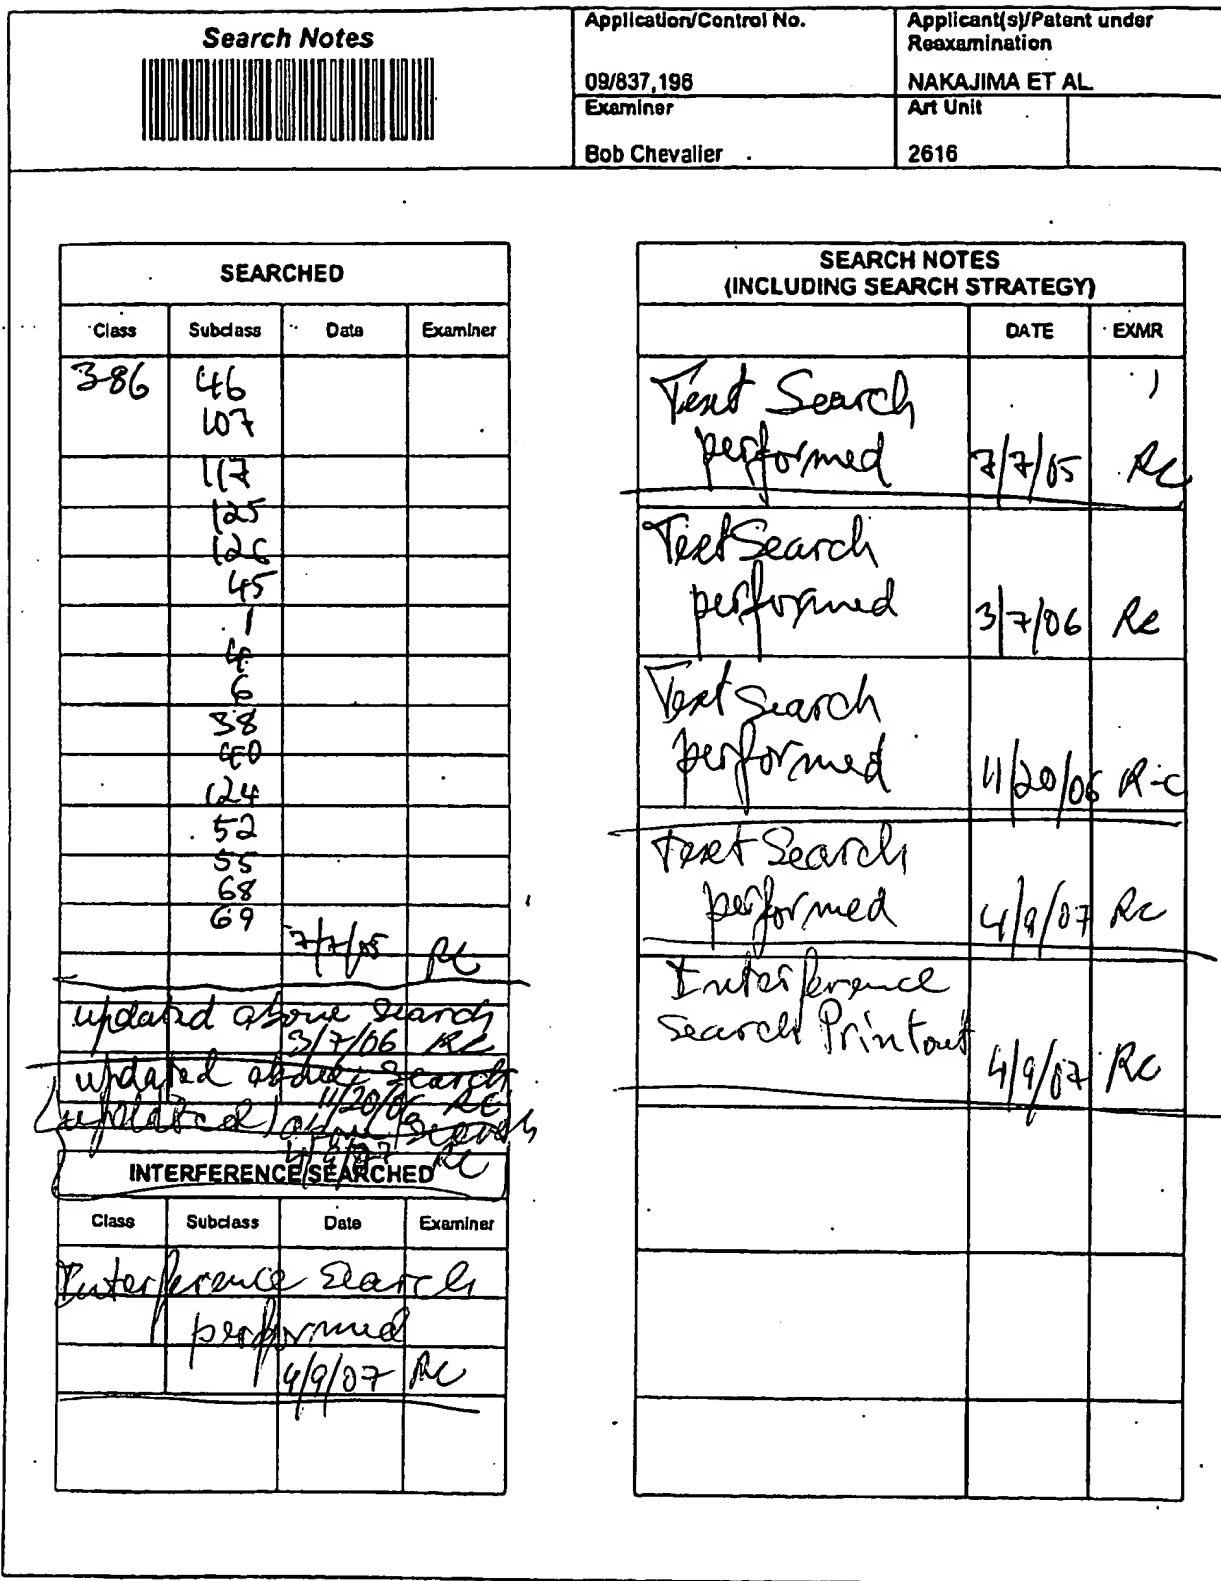 Search Notes
Application/Control No.
09/837,196
Applicant(s)/Patent under
Reexamination
NAKAJIMA ET AL.
Examiner
Bob Chevalier
Art Unit
2616
SEARCHED
Class Subclass Date Examiner
386 46
107
117
125
126
45
1
4
6
38
40
124
52
55
68
69
7/7/05 RC
updated above search
3/7/06 RC
updated above search
11/20/06 RC
updated above search
4/9/07 RC
INTERFERENCE SEARCHED
Class Subclass Date Examiner
Interference Search
performed
4/9/07 RC
SEARCH NOTES
(INCLUDING SEARCH STRATEGY)
DATE EXMR
Text Search
performed 7/7/05 RC
Text Search
performed 3/7/06 RC
Text Search
performed 11/20/06 R-C
Text Search
performed 4/9/07 RC
Interference
Search Printout
4/9/07 RC